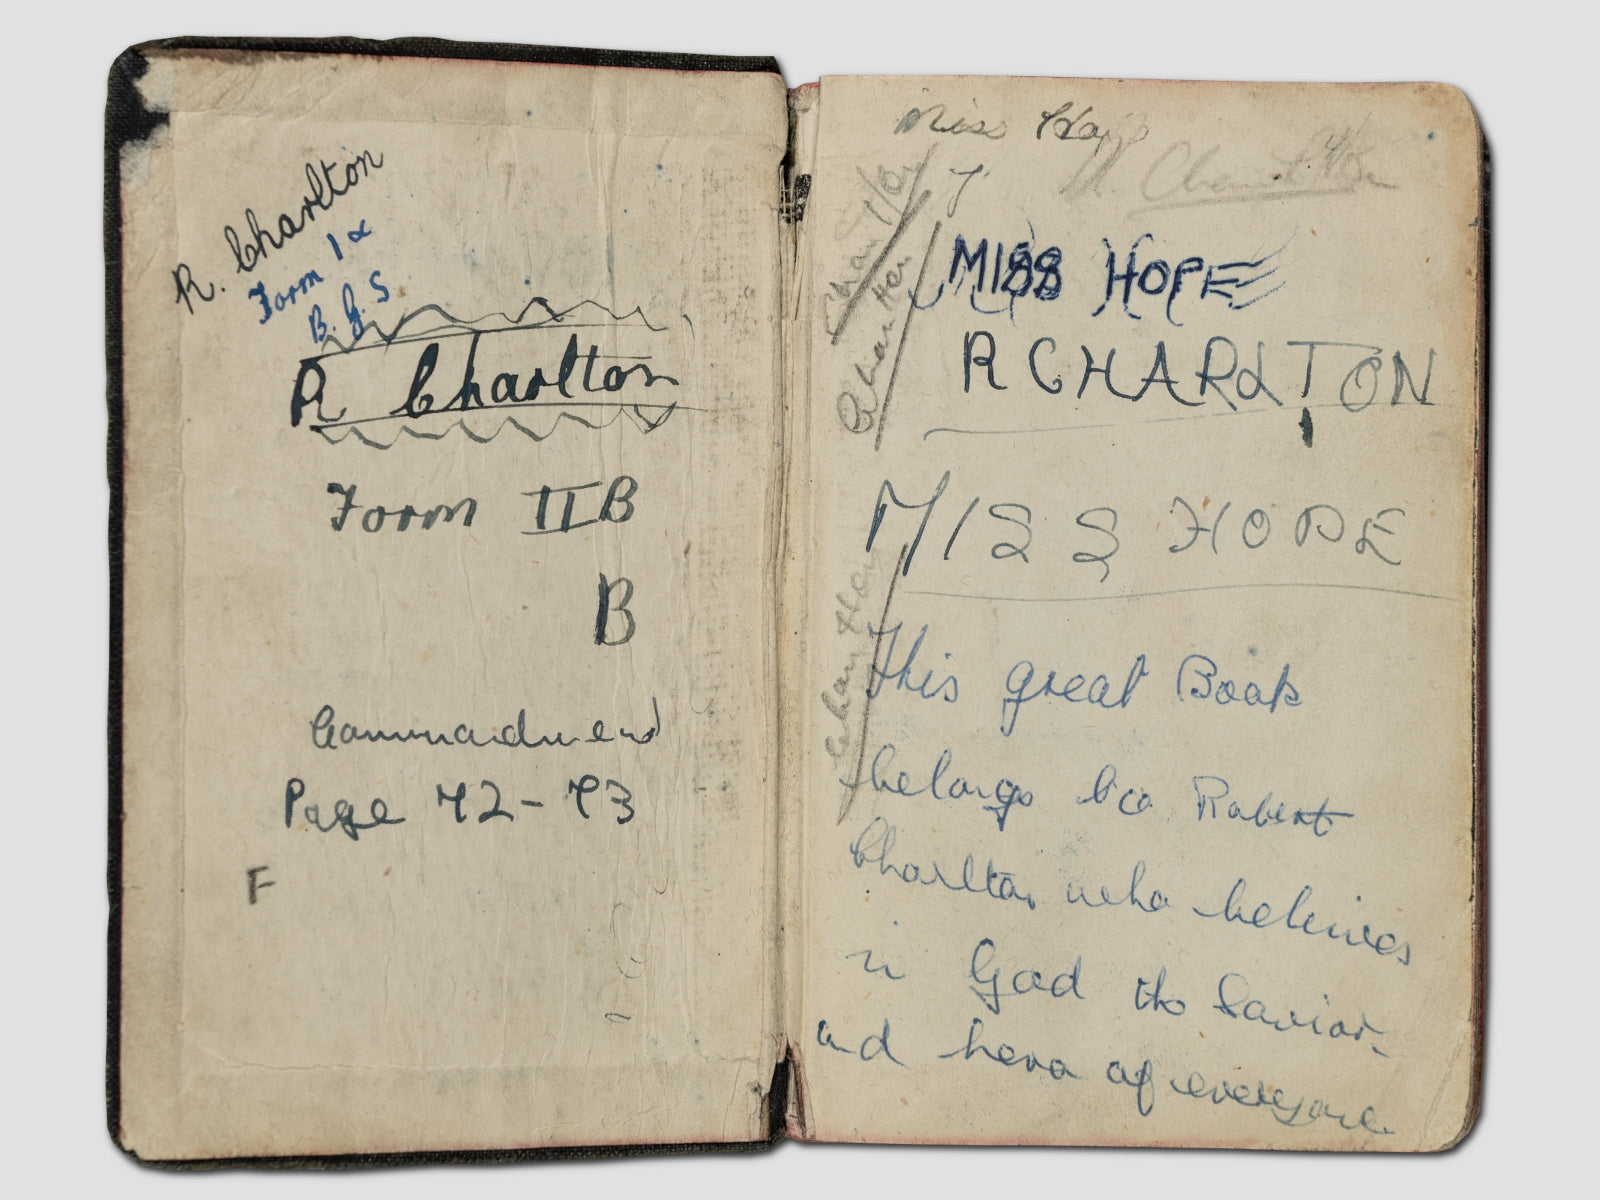 R. Charlton
Form 1 α
B.G.S
R Charlton
Form II B
B
Commadmend
Page 72-73
F
Miss Hope
Charlton
Charlton
MISS HOPE
R CHARLTON
MISS HOPE
Charlton
This great Book
belongs too Robert
Charlton who beleives
in God the Savior
and hero of everyone